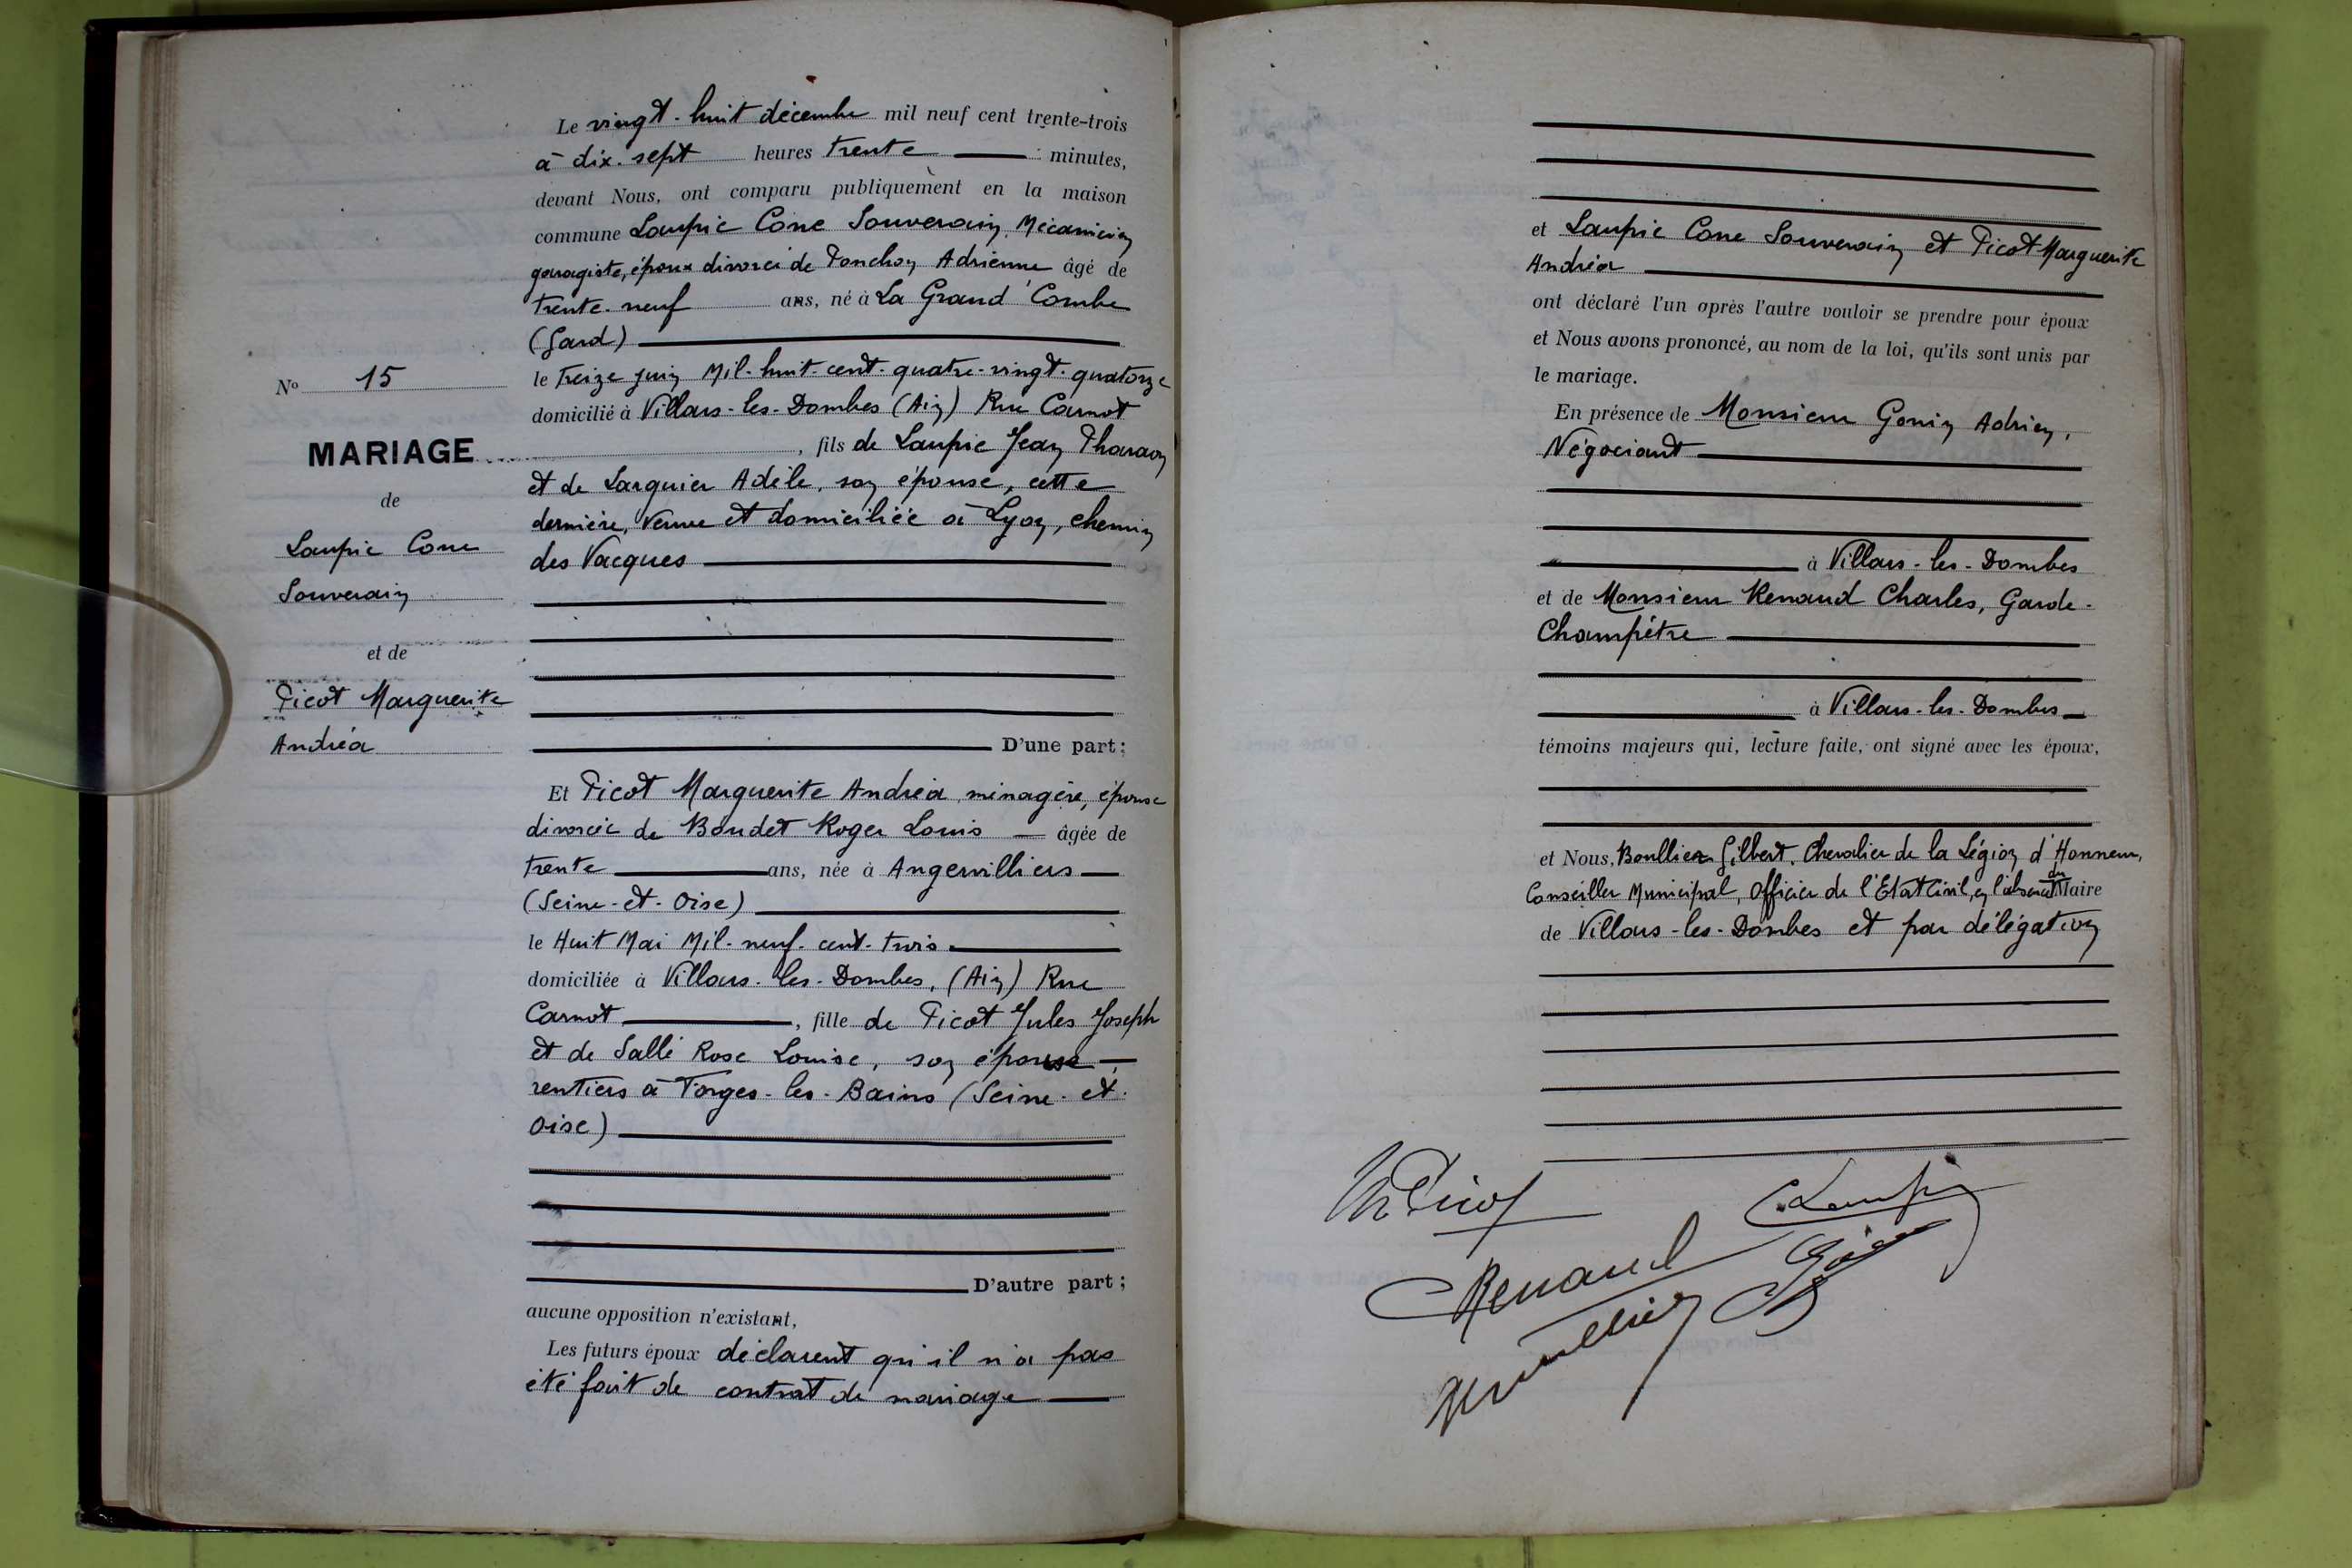 Le vingt-huit décembre mil neuf cent trente-trois
à dix-sept heures trente minutes,
devant Nous, ont comparu publiquement en la maison
commune Laupie Cone Souverain, Mécanicien
garagiste, époux divorcé de Ponchon Adrienne âgé de
trente-neuf ans, né à La Grand'Combe
(Gard)
le treize juin Mil-huit-cent-quatre-vingt-quatorze
domicilié à Villars-les-Dombes (Ain) Rue Carnot
, fils de Laupie Jean Pharaon
et de Larguier Adèle, son épouse, cette
dernière, veuve et domiciliée à Lyon, chemin
des Vacques
D'une part;
N° 15
MARIAGE
de
Laupie Cone
Souverain
et de
Picot Marguerite
Andréa
Et Picot Marguerite Andréa, ménagère, épouse
divorcée de Boudet Roger Louis âgée de
trente ans, née à Angervilliers
(Seine-et-Oise)
le Huit Mai Mil-neuf-cent-trois
domiciliée à Villars-les-Dombes, (Ain) Rue
Carnot, fille de Picot Jules Joseph
et de Sallé Rose Louise, son épouse,
rentiers à Forges-les-Bains (Seine-et-
Oise)
D'autre part;
aucune opposition n'existant,
Les futurs époux déclarent qu'il n'a pas
été fait de contrat de mariage
et Laupie Cone Souverain et Picot Marguerite
Andréa
ont déclaré l'un après l'autre vouloir se prendre pour époux
et Nous avons prononcé, au nom de la loi, qu'ils sont unis par
le mariage.
En présence de Monsieur Gonin Adrien,
Négociant
à Villars-les-Dombes
et de Monsieur Renaud Charles, Garde-
Champêtre
à Villars-les-Dombes
témoins majeurs qui, lecture faite, ont signé avec les époux,
et Nous, Boullier Gilbert, Chevalier de la Légion d'Honneur,
Conseiller Municipal, Officier de l'Etat Civil, en l'absence du Maire
de Villars-les-Dombes et par délégation
M Picot
Laupie
Renaud